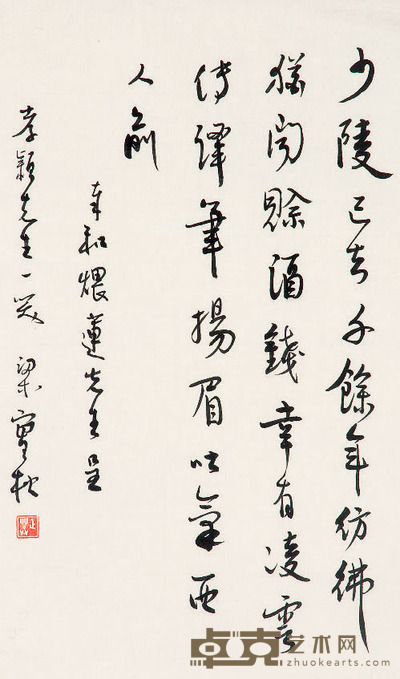 少陵已去千餘年仿彿
猶聞賒酒錢幸有凌雲
傳譯筆揚眉吐氣西
人前
奉和煨蓮先生呈
孝穎先生一笑 梁實秋
卓克艺术网
zhuokearts.com